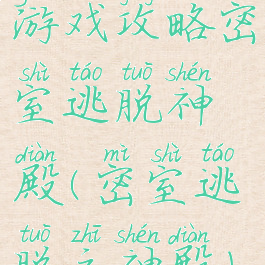 游戏攻略密
shì táo tuō shén
室逃脱神
diàn mì shì táo
殿(密室逃
tuō zhī shén diàn
脱之神殿)